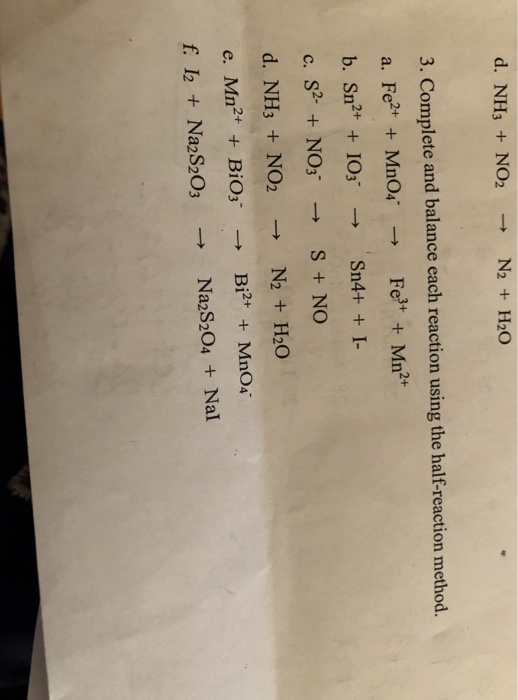 d. NH₃ + NO₂ → N₂ + H₂O
3. Complete and balance each reaction using the half-reaction method.
a. Fe²⁺ + MnO₄⁻ → Fe³⁺ + Mn²⁺
b. Sn²⁺ + IO₃⁻ → Sn4+ + I-
c. S²⁻ + NO₃⁻ → S + NO
d. NH₃ + NO₂ → N₂ + H₂O
e. Mn²⁺ + BiO₃⁻ → Bi²⁺ + MnO₄⁻
f. I₂ + Na₂S₂O₃ → Na₂S₂O₄ + NaI